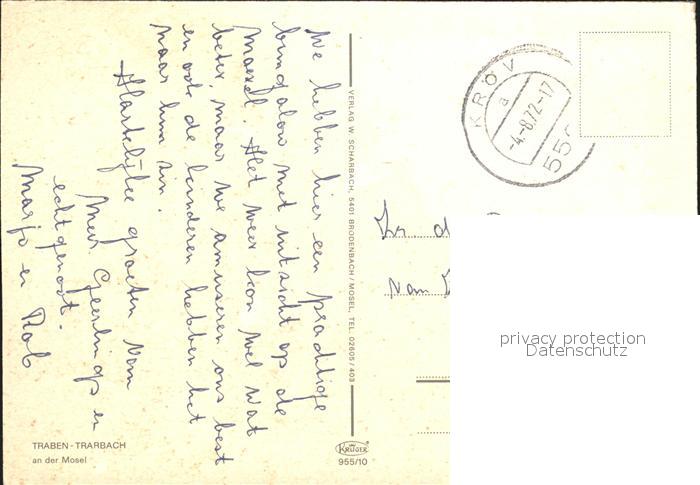 We hebben hier een prachtige
bungalow met uitzicht op de
Moezel. Het weer kon wel wat
beter, maar we amuseren ons best
en ook de kinderen hebben het
naar hun zin.
Hartelijke groeten van
Mevr. Geerlings en
echtgenoot.
Marjo en Rob
TRABEN-TRARBACH
an der Mosel
VERLAG W. SCHARBACH, 5401 BRODENBACH/MOSEL, TEL. 02605/403
KRÜGER
955/10
KRÖV
a
-4.-8.72-17
55
van
privacy protection
Datenschutz